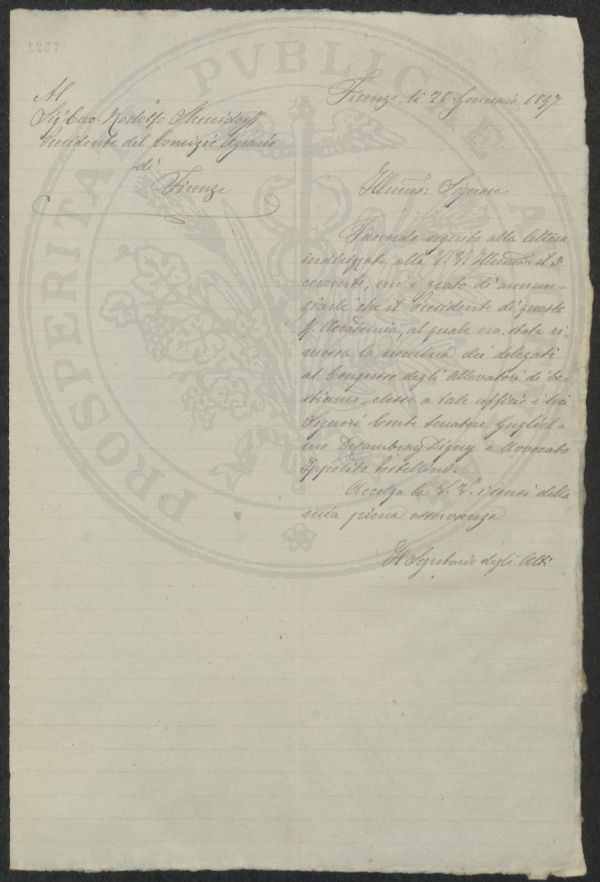 1287
PROSPERITATI PVBLICAE A
Firenze, li 28 Gennaio 1897
Al
Sig. Cav. Rodolfo
Presidente del Comizio Agrario
di
Firenze
Illumo: Signore
Facendo seguito alla lettera
indirizzata alla S. V. Illuma: il 3
corrente, mi è grato di annun-
ziarle che il Presidente di questa
R. Accademia, al quale era stata ri-
messa la nomina dei delegati
al Congresso degli Allevatori di be-
stiame, elesse a tale ufficio i soci
Signori Conte Senatore Gugliel-
mo Digny e Avvocato
Ippolito
Accolga la S. V. i sensi della
mia piena osservanza
Il Segretario degli Atti